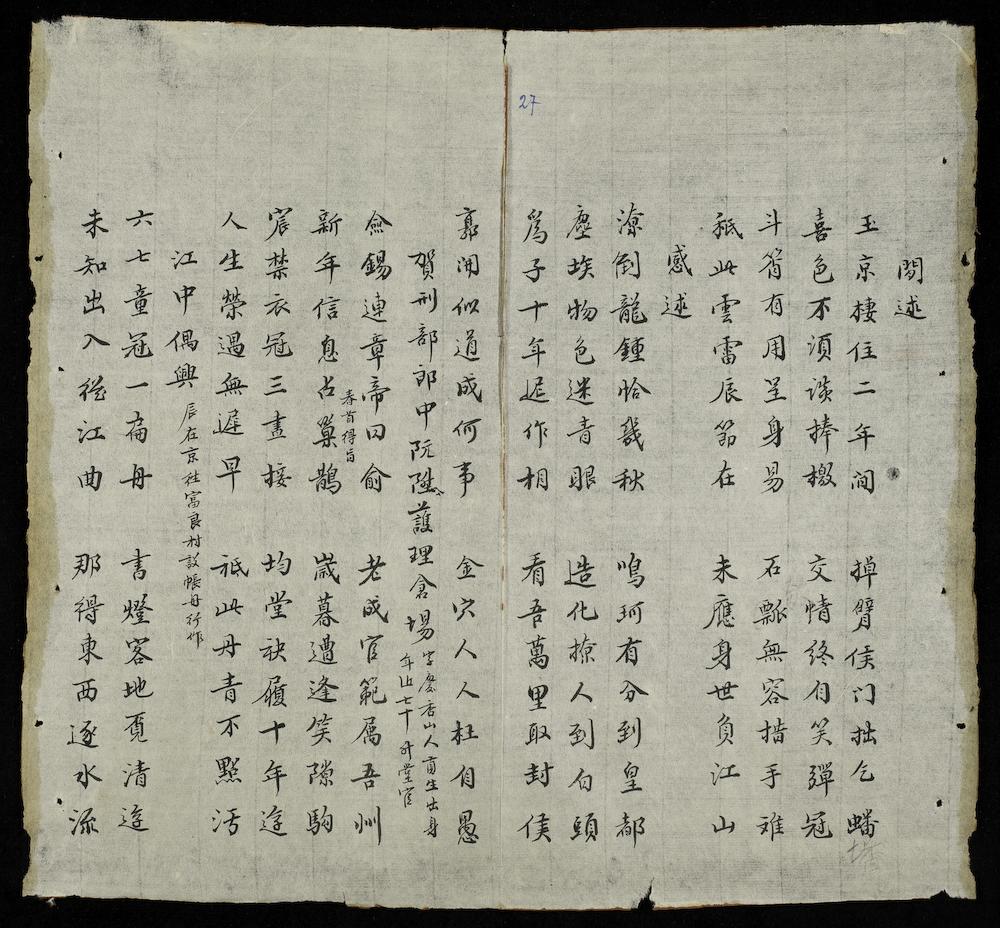 27
閒述
玉京棲住二年间 掉臂侯门拙乞蟠
喜色不須談捧檄 交情終自笑彈冠
斗筲有用呈身易 石瓢無容措手难
秪此雲雷辰節在 未應身世負江山
感述
潦倒龍鍾恰幾秋 鳴珂有分到皇都
塵埃物色迷青眼 造化撩人到白頭
爲子十年遲作相 看吾萬里取封侯
郭開似道成何事 金穴人人枉自愚
賀刑部郎中阮陞護理倉場
字慶香山人貢生出身
年近七十升堂官
僉錫連章帝曰俞 老成官範属吾州
春首得旨
新年信息占巢鵲 歲暮遭逢笑隙駒
宸禁衣冠三晝接 均堂袂履十年遊
人生榮遇無遲早 祗此丹青不點汚
江中偶興 辰在京社富良村設帳舟行作
六七童冠一扁舟 書燈客地覔清遊
未知出入從江曲 那得東西逐水流